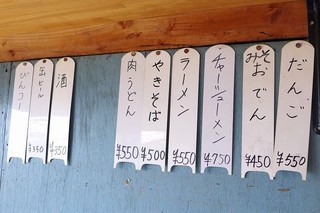 だんご
¥550
みそおでん
¥450
チャーシューメン
¥750
ラーメン
¥550
やきそば
¥500
肉うどん
¥550
酒
¥350
缶ビール
¥350